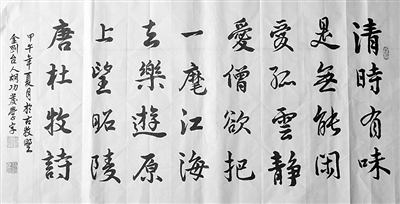 清時有味
是無能閑
愛孤雲靜
愛僧欲把
一麾江海
去樂遊原
上望昭陵
唐杜牧詩
甲午年夏月於古敦煌